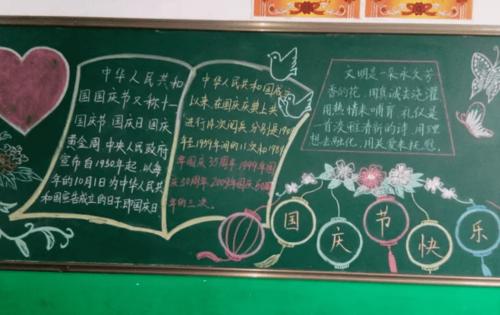 中华人民共和
国国庆节又称十一
国庆节 国庆日 国庆
黄金周 中央人民政府
宣布自1950年起,以每
年的10月1日为中华人民共
和国宣告成立的日子即国庆日
中华人民共和国成立
以来,在国庆庆典上共
进行 次阅兵 分别是
至1959年间的11次和1984
年国庆35周年 1999年国
庆50周年 2009年国庆60周
年的三次。
文明是一朵永久芳
香的花 用真诚去浇灌
用热情来哺育 礼仪是
一首浓 清新的诗 用理
想去融化 用关爱来抚慰
国庆节快乐